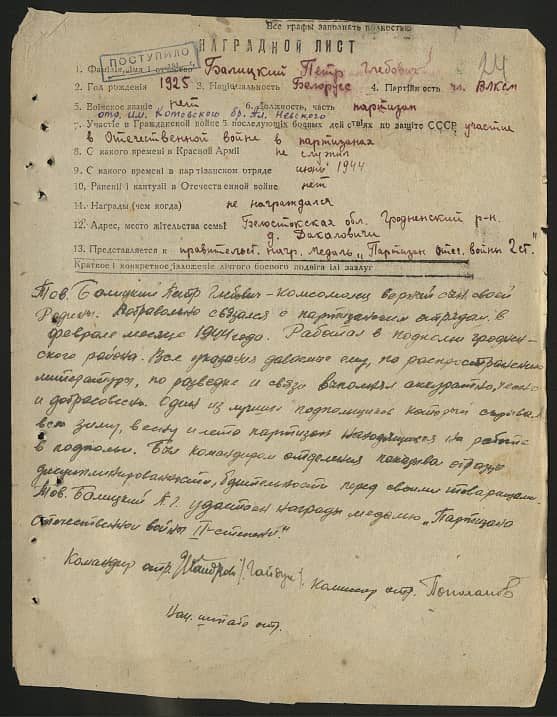 Все графы заполнять полностью
24
ПОСТУПИЛО
НАГРАДНОЙ ЛИСТ
1. Фамилия, имя и отчество Балицкий Петр Глебович
2. Год рождения 1925 3. Национальность Белорус 4. Партийность чл. ВЛКСМ
5. Воинское звание нет 6. Должность, часть партизан
отр. им. Котовского бр. Ал. Невского
7. Участие в Гражданской войне и последующих боевых действиях по защите СССР участие
в Отечественной войне в партизанах
8. С какого времени в Красной Армии не служил
9. С какого времени в партизанском отряде июнь 1944
10. Ранения и кантузии в Отечественной войне нет
11. Награды (чем когда) не награждался
12. Адрес, место жительства семьи Белостокская обл. Гродненский р-н.
д.
13. Представляется к правительст. награ. медаль „Партизан Отеч. войны 2 ст."
Краткое и конкретное изложение личного боевого подвига или заслуг
Тов. Балицкий Петр Глебович - комсомолец верный сын своей
Родины. связался с партизанским отрядом в
феврале месяце 1944 года. Работал в подполье гроднен-
ского района. Все указания даваемые ему, по распространению
литературы, по разведке и связи выполнял аккуратно, честно
и добрасовесно. Один из лучших подпольщиков который скрывал
всю зиму, весну и лето партизан находящихся на работе
в подполье. Был командиром отделения показывал образцы
дисциплинированности, бдительности перед своими товарищами.
Тов. Балицкий П.Г. удостоен награды медалью „Партизана
отечественной войны II-степени."
Командир отр.
Комиссар отр.
Нач. штаба отр.